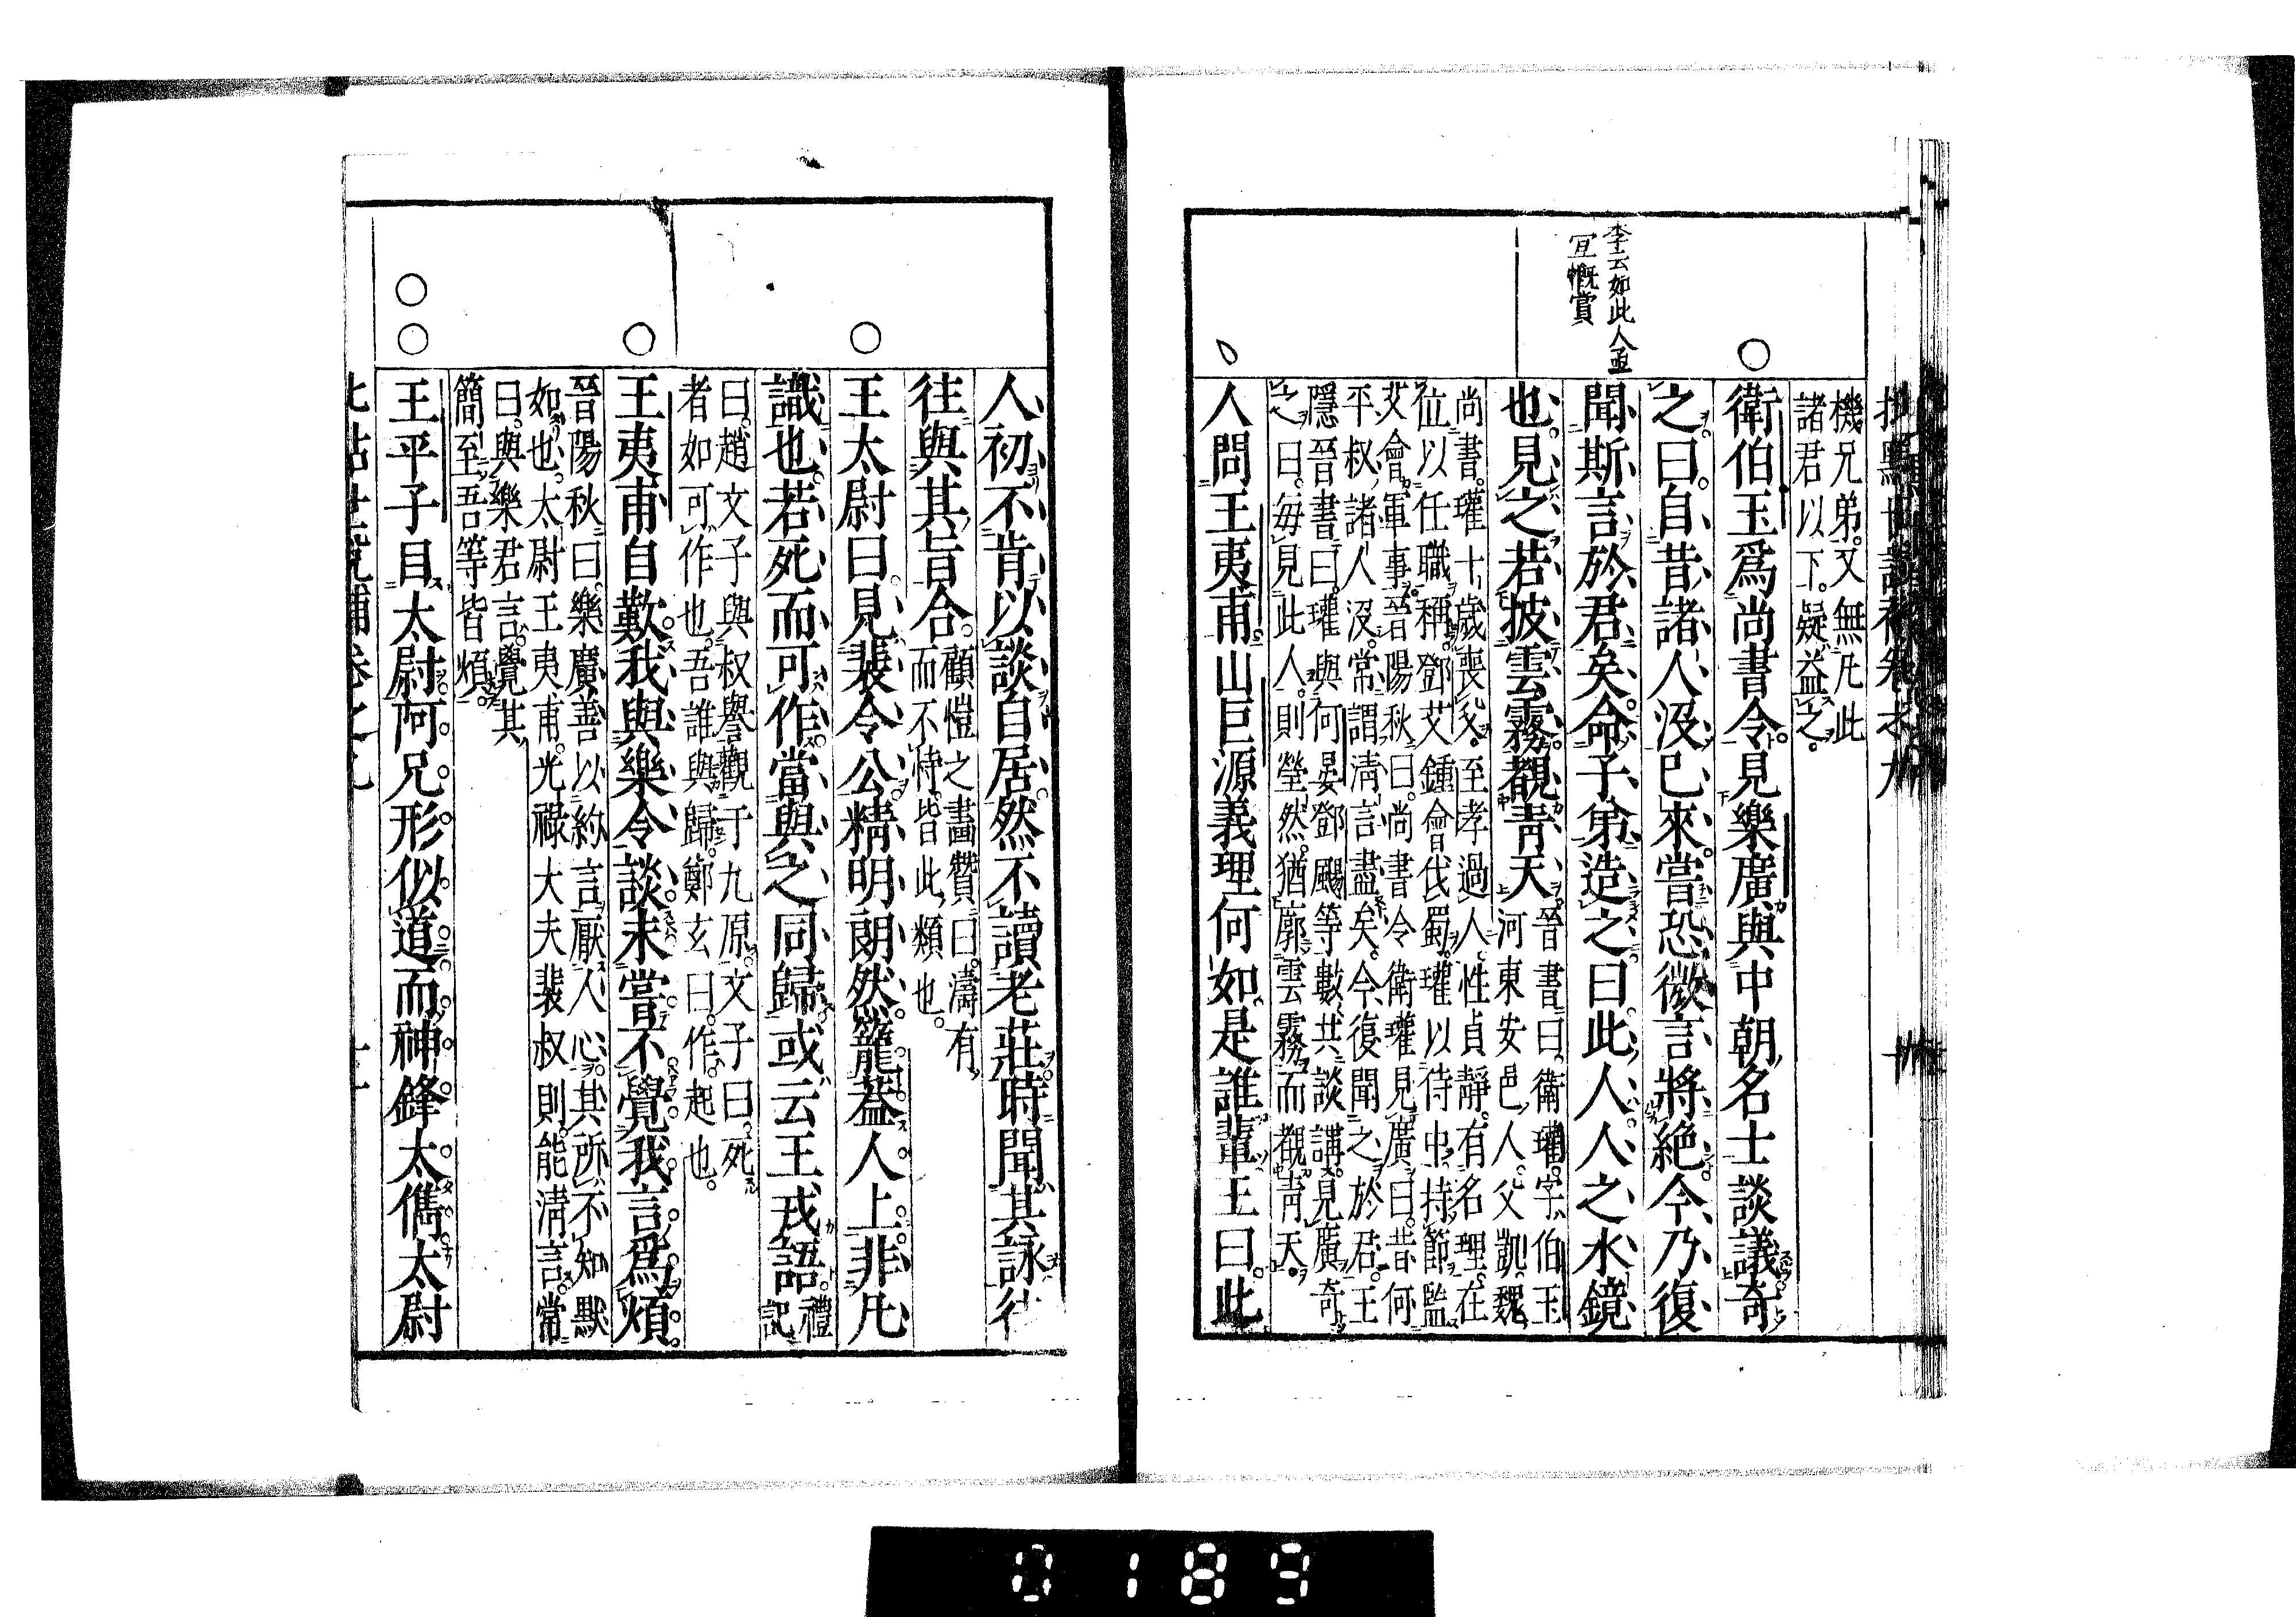 機兄弟又無凡此
諸君以下疑益之
衛伯玉爲尚書令見樂廣與中朝名士談議奇
之曰自昔諸人沒已來嘗恐微言將絶今乃復
聞斯言於君矣命子弟造之曰此人人之水鏡
李云如此人亟
宜慨賞
也見之若披雲霧覩靑天
晉書曰衛瓘字伯玉
河東安邑人父凱魏
尚書瓘十歲喪父至孝過人性貞靜有名理在
位以任職稱鄧艾鍾會伐蜀瓘以侍中持節監
艾會軍事晉陽秋曰尚書令衛瓘見廣曰昔何
平叔諸人沒常謂淸言盡矣今復聞之於君王
隱晉書曰瓘與何晏鄧颺等數共談講見廣奇
之曰每見此人則瑩然猶廓雲霧而覩靑天
人問王夷甫山巨源義理何如是誰輩王曰此
人初不肯以談自居然不讀老莊時聞其詠往
往與其旨合
顧愷之畫贊曰濤有
而不恃皆此類也
王太尉曰見裴令公精明朗然籠葢人上非凡
識也若死而可作當與之同歸或云王戎語
禮
記
曰趙文子與叔譽觀于九原文子曰死
者如可作也吾誰與歸鄭玄曰作起也
王夷甫自歎我與樂令談未嘗不覺我言爲煩
晉陽秋曰樂廣善以約言厭人心其所不知默
如也太尉王夷甫光祿大夫裴叔則能淸言常
曰與樂君言覺其
簡至吾等皆煩
王平子目太尉阿兄形似道而神鋒太儁太尉
0189